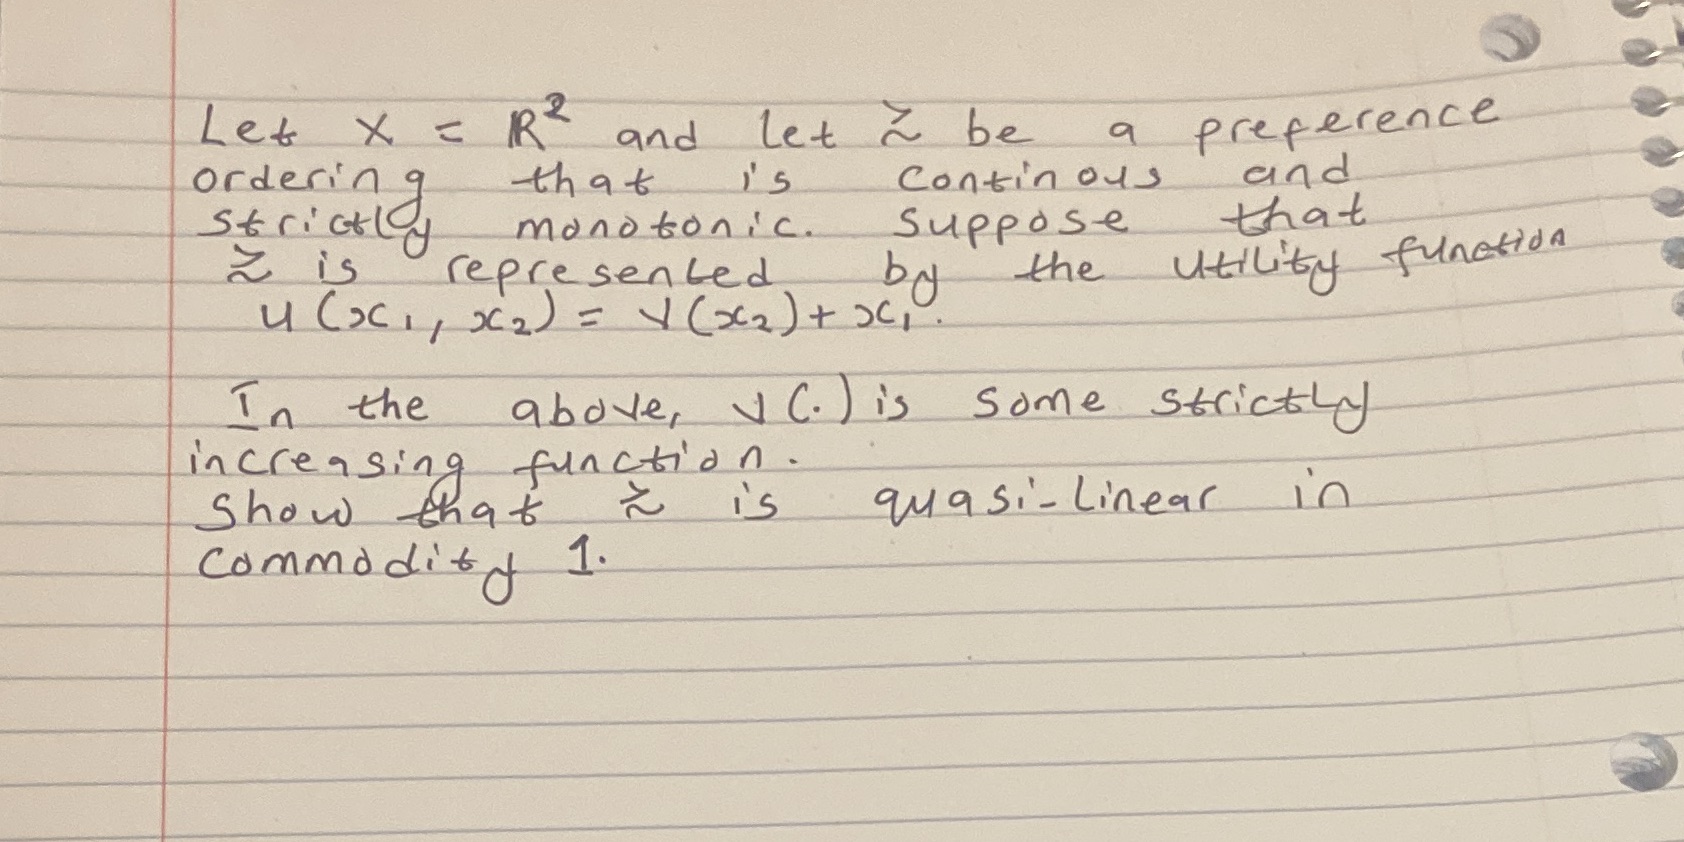 Let X = ℝ² and let ≿ be a preference
ordering that is continous and
strictly monotonic. Suppose that
≿ is represented by the utility function
u(x₁, x₂) = v(x₂) + x₁.
In the above, v(.) is some strictly
increasing function.
Show that ≿ is quasi-linear in
commodity 1.